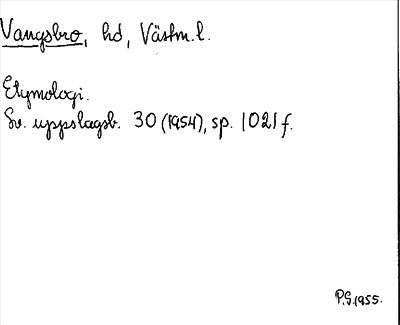 Vangsbro, hd, Västm.l.
Etymologi.
Sv. uppslagsb. 30 (1954), sp. 1021 f.
P.G. 1955.